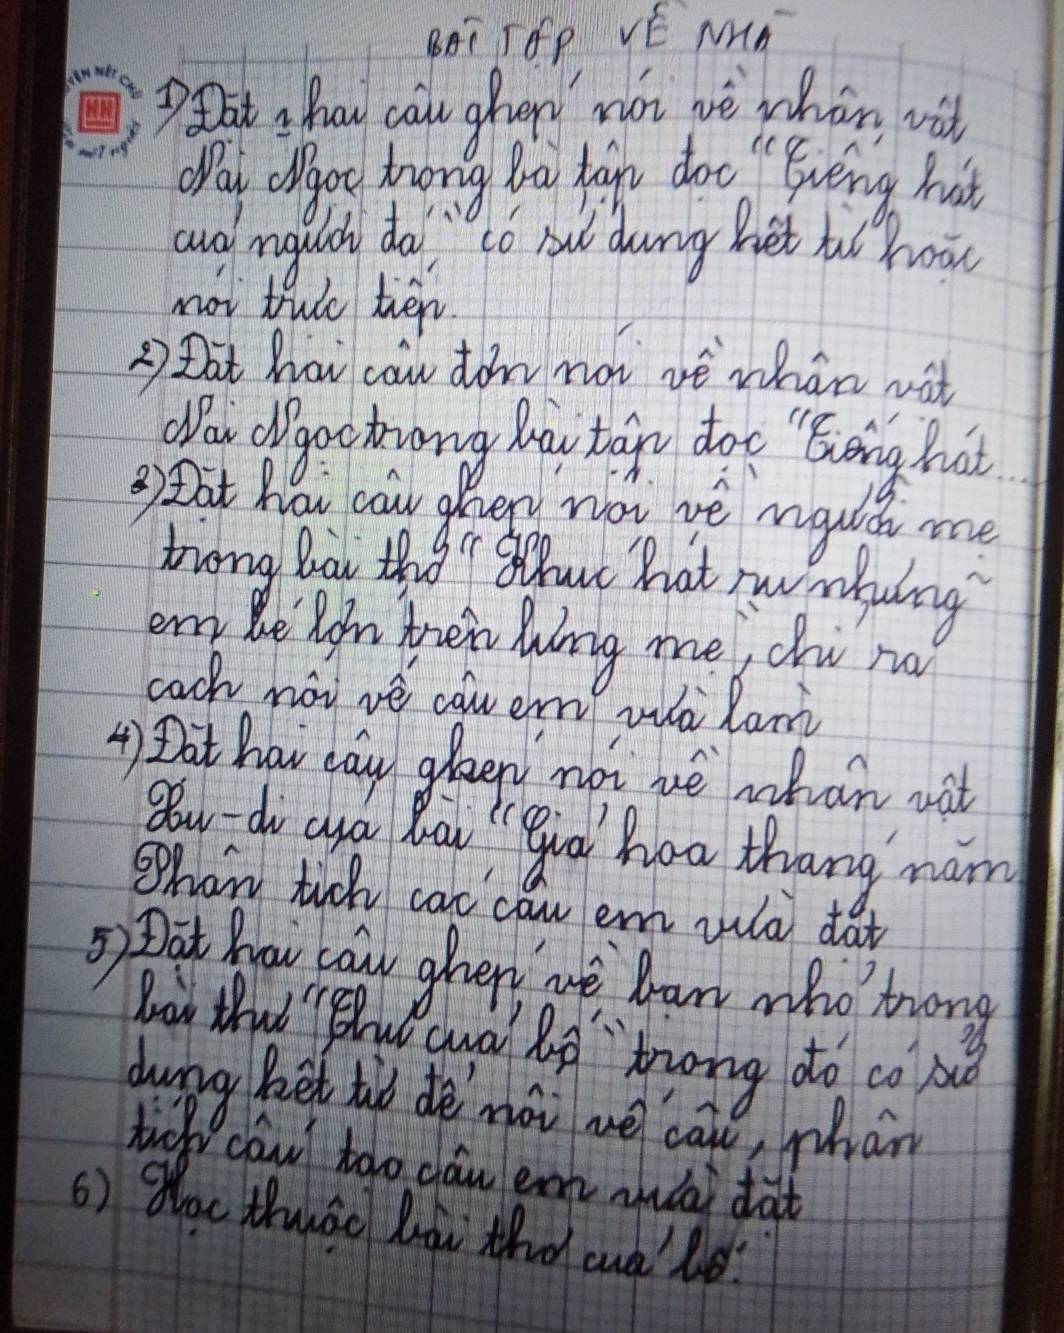 BÀI TẬP VỀ NHÀ
1) Đặt 2 hai câu ghép nói về nhân vật
Nai Ngọc trong bà tập đọc "Tiếng hát
của người đá" có sử dụng kết từ hoặc
nối trực tiếp.
2) Đặt hai câu đơn nói về nhân vật
Nai Ngọc trong bài tập đọc "Tiếng hát...
3) Đặt hai câu ghép nói về người mẹ
trong bài thơ "Khúc hát ru những
em bé lớn trên lưng mẹ", chỉ ra
cách nối vế câu em vừa làm
4) Đặt hai câu ghép nói về nhân vật
Xu-di của bài "Giá hoa tháng năm
Phân tích các câu em vừa đặt
5) Đặt hai câu ghép về bạn nhỏ trong
bài thư "Thư của bố" trong đó có sử
dụng kết từ để nối vế câu, phân
tích câu tạo câu em vừa đặt
6) Học thuộc bài thơ của bố.